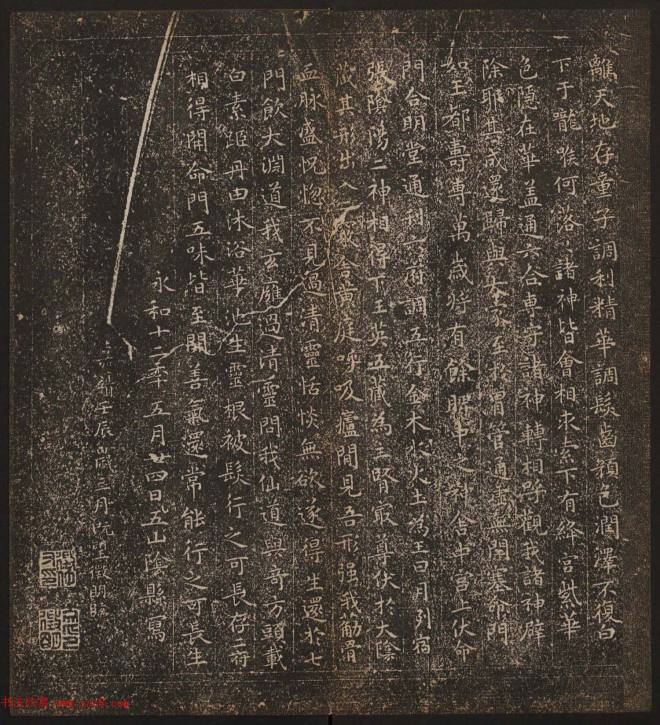 離天地存童子調利精華調髮齒顏色潤澤不復白
下于嚨喉何落落諸神皆會相求索下有絳宮紫華
色隱在華蓋通六合專守諸神轉相呼觀我諸神辟
除耶其成還歸與大家至於胃管通虛無閉塞命門
如玉都壽專萬歲將有餘脾中之神舍中宮上伏命
門合明堂通利六府調五行金木水火土為王日月列宿
張陰陽二神相得下玉英五藏為主腎最尊伏於大陰
藏其形出入二竅舍黃庭呼吸廬間見吾形强我筋骨
血脉盛恍惚不見過清靈恬惔無欲遂得生還於七
門飲大淵道我玄膺過清靈問我仙道與奇方頭載
白素距丹田沐浴華池生靈根被髮行之可長存二府
相得開命門五味皆至開善氣還常能行之可長生
永和十二年五月廿四日五山陰縣寫
嘉靖壬辰歲三月既望徵明臨
书法欣赏 www.yac8.com